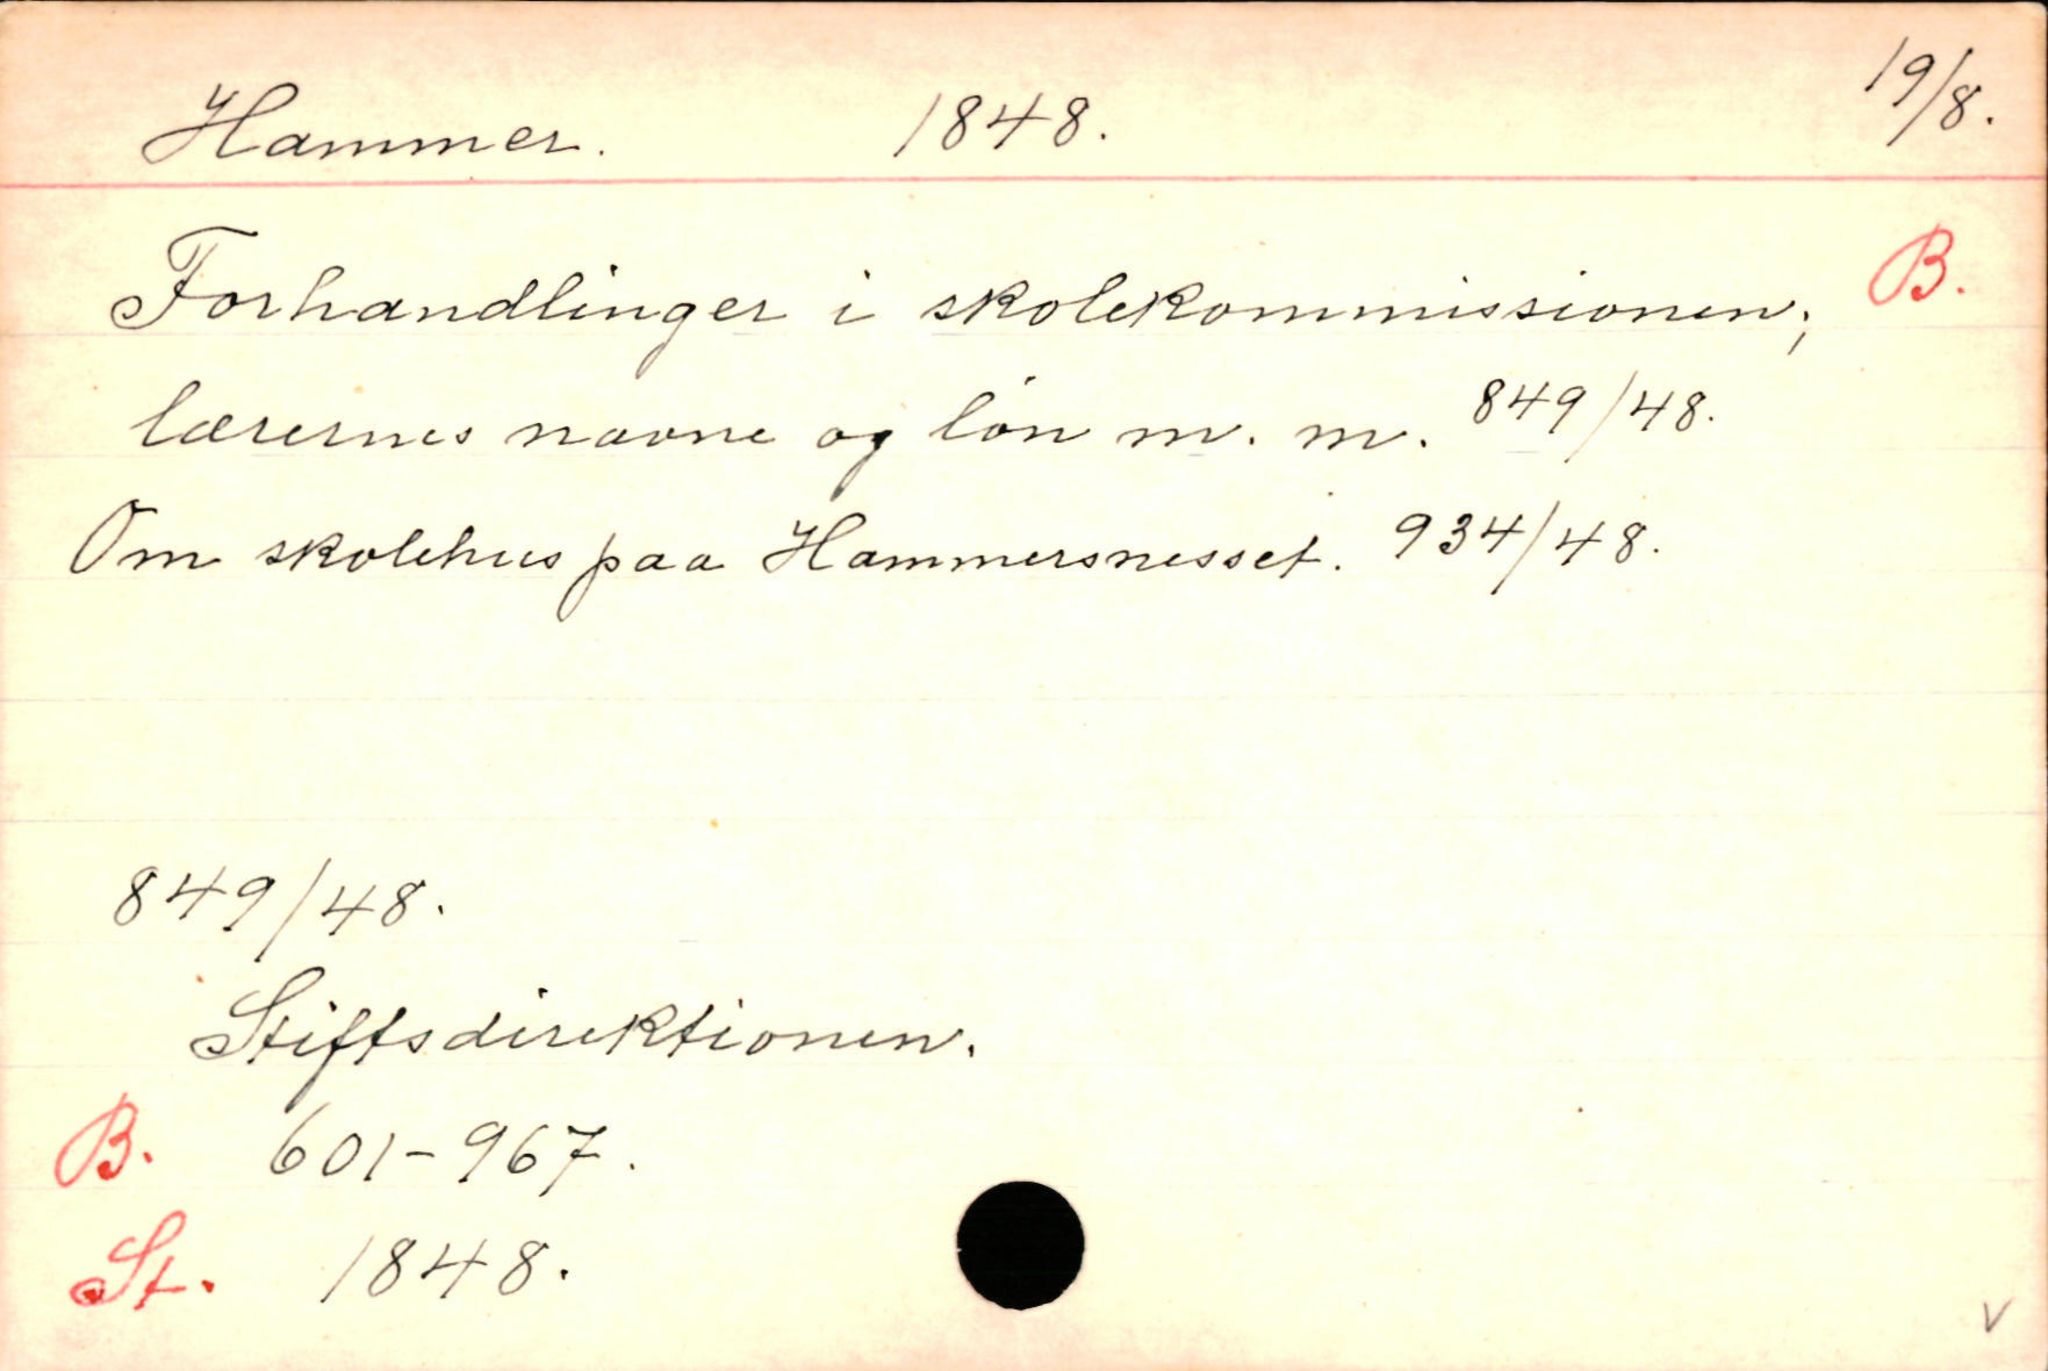 Hammer. 1848. 19/8.
Forhandlinger i skolekommissionen; B.
lærernes navne og lón m. m. 849/48.
Om skolehus paa Hammersnesset. 934/48.
849/48.
Stiftsdirektionen.
B. 601-967.
St. 1848.
v